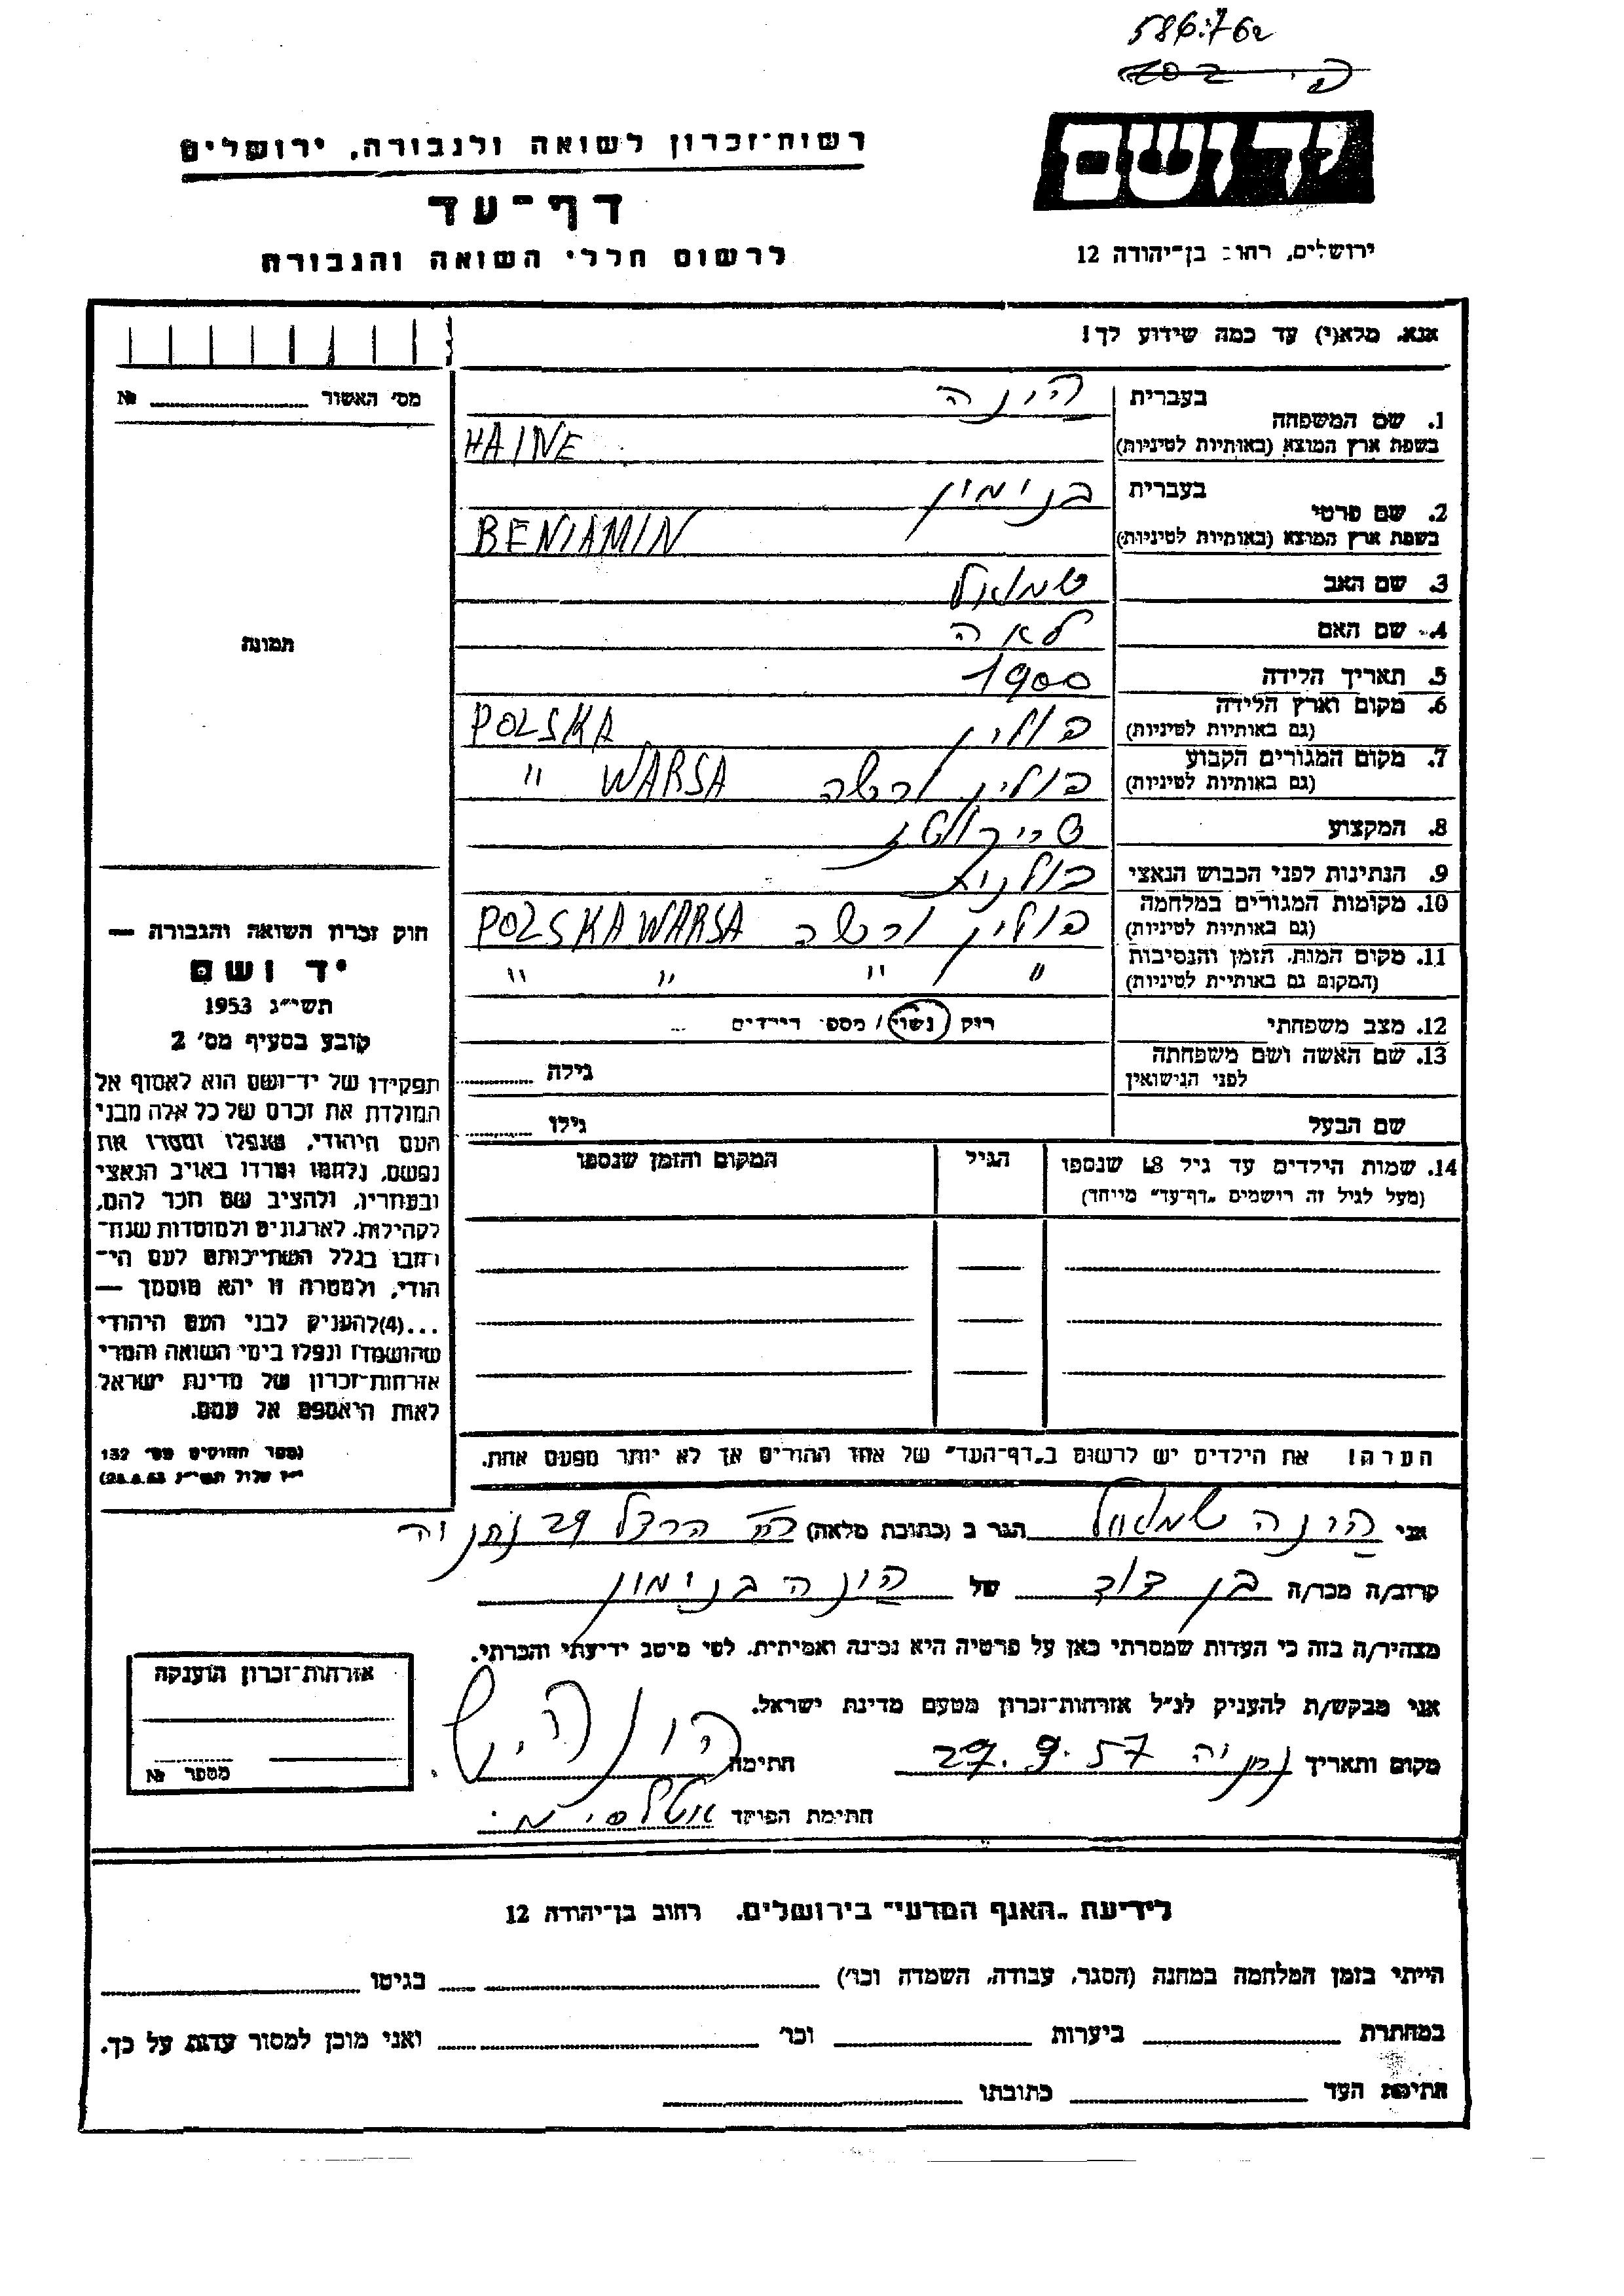 586.762
יד ושם
ירושלים, רחוב בן־יהודה 12
רשות־זכרון לשואה ולגבורה, ירושלים
דף־עד
לרשום חללי השואה והגבורה
אנא, מלא(י) עד כמה שידוע לך!
מס' האשור №
1. שם המשפחה
בעברית הינה
בשפת ארץ המוצא (באותיות לטיניות) HAINE
2. שם פרטי
בעברית בנימין
בשפת ארץ המוצא (באותיות לטיניות) BENIAMIN
3. שם האב שמואל
4. שם האם לאה
5. תאריך הלידה 1900
6. מקום וארץ הלידה פולין POLSKA
(גם באותיות לטיניות)
7. מקום המגורים הקבוע פולין ורשה WARSA "
(גם באותיות לטיניות)
8. המקצוע
9. הנתינות לפני הכבוש הנאצי פולנית
10. מקומות המגורים במלחמה פולין ורשה POLSKA WARSA
(גם באותיות לטיניות)
11. מקום המות, הזמן והנסיבות " " " "
(המקום גם באותיות לטיניות)
12. מצב משפחתי רוק / נשוי / מספר הילדים
13. שם האשה ושם משפחתה
לפני הנישואין גילה
שם הבעל גילו
14. שמות הילדים עד גיל 18 שנספו הגיל המקום והזמן שנספו
(מעל לגיל זה רושמים „דף־עד" מיוחד)
הערה! את הילדים יש לרשום ב„דף־העד" של אחד ההורים אך לא יותר מפעם אחת.
תמונה
חוק זכרון השואה והגבורה —
יד ושם
תשי"ג 1953
קובע בסעיף מס' 2
תפקידו של יד־ושם הוא לאסוף אל
המולדת את זכרם של כל אלה מבני
העם היהודי, שנפלו ומסרו את
נפשם, נלחמו ומרדו באויב הנאצי
ובעוזריו, ולהציב שם וזכר להם,
לקהילות, לארגונים ולמוסדות שנח־
רבו בגלל השתייכותם לעם הי־
הודי, ולמטרה זו יהא מוסמך —
...(4)להעניק לבני העם היהודי
שהושמדו ונפלו בימי השואה והמרי
אזרחות־זכרון של מדינת ישראל
לאות היאספם אל עמם.
(ספר החוקים מס' 132
י"ז אלול תשי"ג 28.8.53)
אני הינה שמואל הגר ב (כתובת מלאה) רח' הרצל 29 נתניה
קרוב/ה מכר/ה בן דוד של הינה בנימין
מצהיר/ה בזה כי העדות שמסרתי כאן על פרטיה היא נכונה ואמיתית, לפי מיטב ידיעתי והכרתי.
אני מבקש/ת להעניק לנ"ל אזרחות־זכרון מטעם מדינת ישראל.
מקום ותאריך נתניה 27.9.57 חתימה
חתימת הפוקד
אזרחות־זכרון הוענקה
מספר №
לידיעת „האגף המדעי" בירושלים, רחוב בן־יהודה 12
הייתי בזמן המלחמה במחנה (הסגר, עבודה, השמדה וכו') בגיטו
במחתרת ביערות וכו' ואני מוכן למסור עדות על כך.
חתימת העד כתובתו